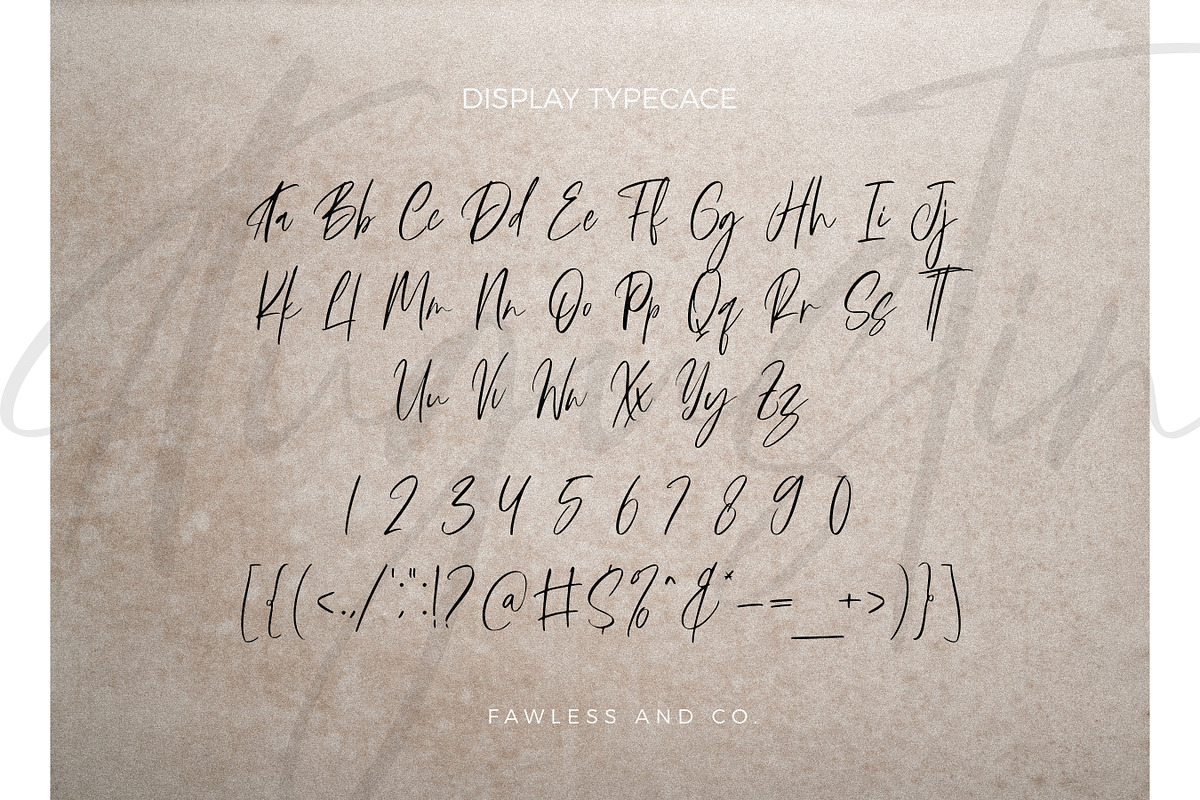 DISPLAY TYPECACE
Aa Bb Cc Dd Ee Ff Gg Hh Ii Jj
Kk Ll Mm Nn Oo Pp Qq Rr Ss Tt
Uu Vv Ww Xx Yy Zz
1 2 3 4 5 6 7 8 9 0
[{(<.,/';":!?@#$%^&*–=_+>)}]
FAWLESS AND CO.